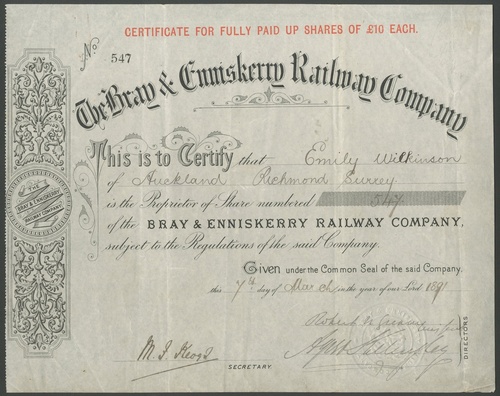 CERTIFICATE FOR FULLY PAID UP SHARES OF £10 EACH.
No. 547
The Bray & Enniskerry Railway Company
This is to Certify that Emily Wilkinson
of Auckland Richmond Surrey
is the Proprietor of Share numbered 547
of the BRAY & ENNISKERRY RAILWAY COMPANY,
subject to the Regulations of the said Company.
GIVEN under the Common Seal of the said Company,
this 7th day of March in the year of our Lord 1891
THE
BRAY & ENNISKERRY
RAILWAY COMPANY
Robert
M. J. Keogh
SECRETARY.
DIRECTORS